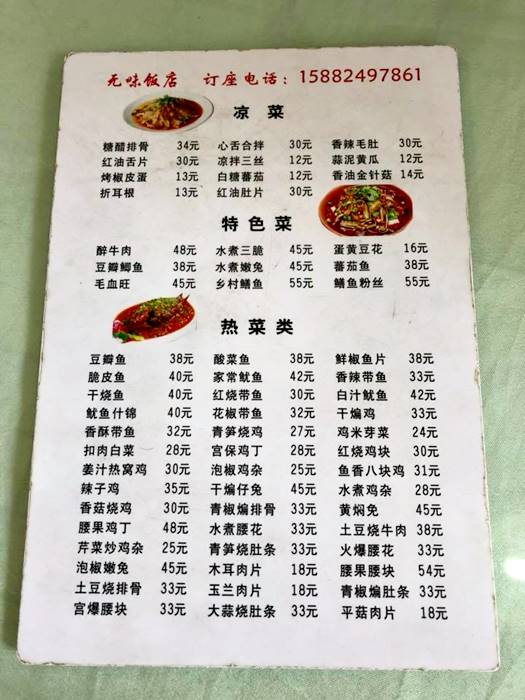 无味饭店 订座电话：15882497861
凉 菜
糖醋排骨 34元 心舌合拌 30元 香辣毛肚 30元
红油舌片 30元 凉拌三丝 12元 蒜泥黄瓜 12元
烤椒皮蛋 13元 白糖蕃茄 12元 香油金针菇 14元
折耳根 13元 红油肚片 30元
特 色 菜
醉牛肉 48元 水煮三脆 45元 蛋黄豆花 16元
豆瓣鲫鱼 38元 水煮嫩兔 45元 蕃茄鱼 38元
毛血旺 45元 乡村鳝鱼 55元 鳝鱼粉丝 55元
热 菜 类
豆瓣鱼 38元 酸菜鱼 38元 鲜椒鱼片 38元
脆皮鱼 40元 家常鱿鱼 42元 香辣带鱼 33元
干烧鱼 40元 红烧带鱼 30元 白汁鱿鱼 42元
鱿鱼什锦 40元 花椒带鱼 32元 干煸鸡 33元
香酥带鱼 32元 青笋烧鸡 27元 鸡米芽菜 24元
扣肉白菜 28元 宫保鸡丁 28元 红烧鸡块 30元
姜汁热窝鸡 30元 泡椒鸡杂 25元 鱼香八块鸡 31元
辣子鸡 35元 干煸仔兔 45元 水煮鸡杂 28元
香菇烧鸡 30元 青椒煸排骨 33元 黄焖兔 45元
腰果鸡丁 48元 水煮腰花 33元 土豆烧牛肉 38元
芹菜炒鸡杂 25元 青笋烧肚条 33元 火爆腰花 33元
泡椒嫩兔 45元 木耳肉片 18元 腰果腰块 54元
土豆烧排骨 33元 玉兰肉片 18元 青椒煸肚条 33元
宫爆腰块 33元 大蒜烧肚条 33元 平菇肉片 18元